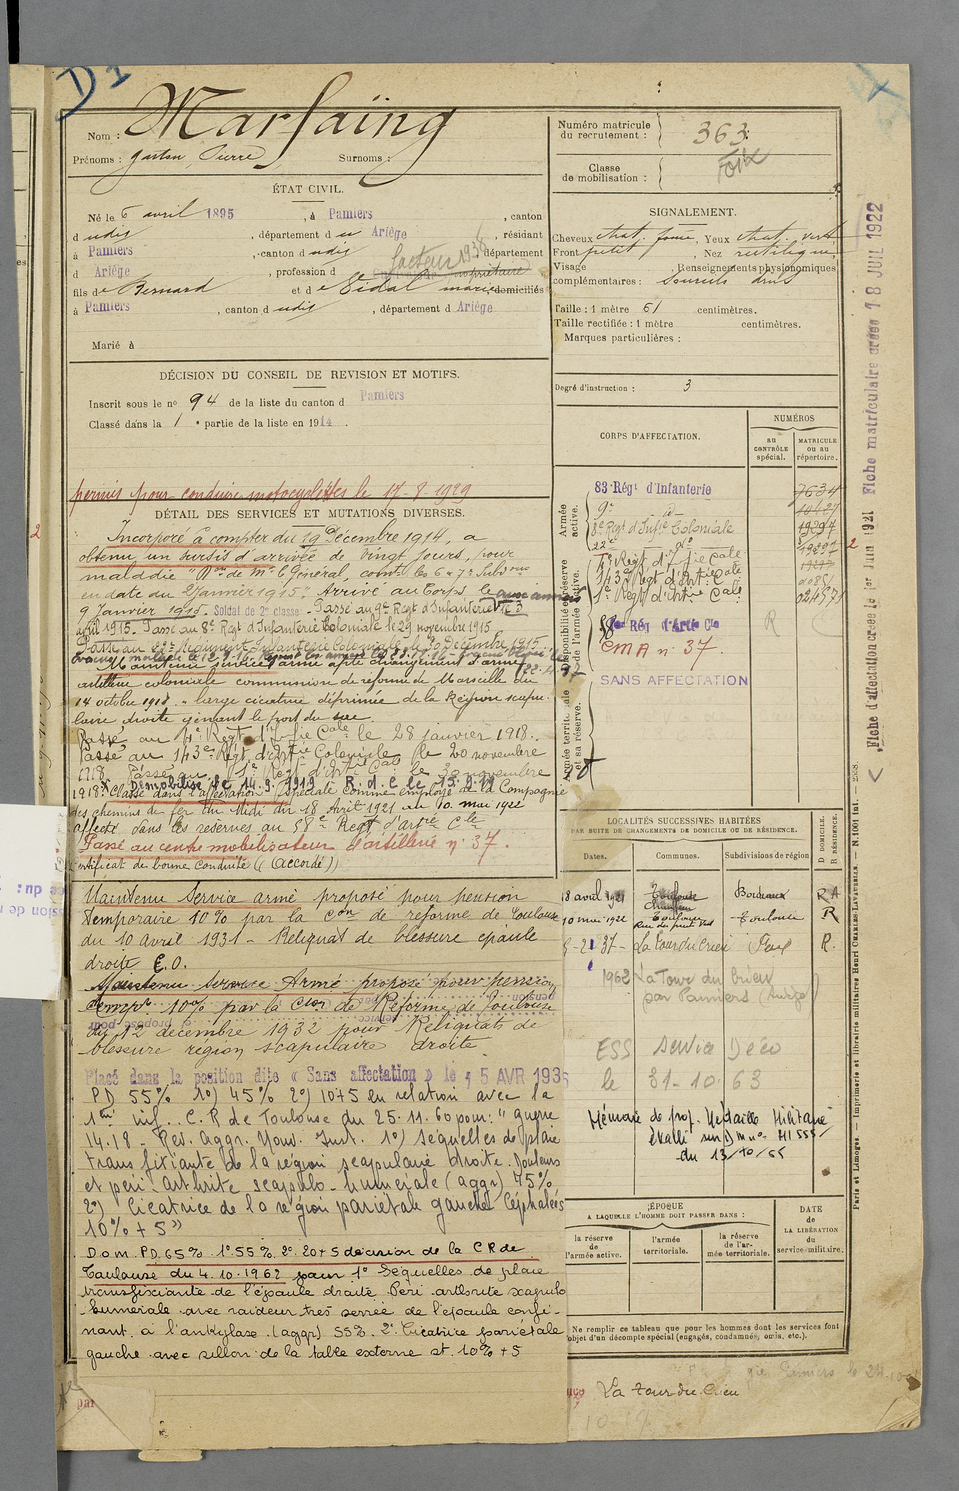 D1
Nom : Marfaïng
Prénoms : Gaston Pierre Surnoms :
ÉTAT CIVIL.
Né le 6 avril 1895, à Pamiers, canton
d udit, département d Ariège, résidant
à Pamiers, canton d udit, département
facteur 1938
d Ariège, profession d propriétaire
fils de Bernard et de Vidal marie domiciliés
à Pamiers, canton d udit, département d Ariège
Marié à
DÉCISION DU CONSEIL DE REVISION ET MOTIFS.
Inscrit sous le n° 94 de la liste du canton d Pamiers
Classé dans la 1 partie de la liste en 1914.
permis pour conduire motocyclettes le 17-8 1929
DÉTAIL DES SERVICES ET MUTATIONS DIVERSES.
Incorporé à compter du 19 Décembre 1914, a
obtenu un sursis d'arrivée de vingt jours, pour
maladie
en date du 2 Janvier 1915. Arrivé au Corps le
9 Janvier 1915. Soldat de 2e classe. Passé au 9e Regt d'Infanterie le 3
avril 1915. Passé au 8e Regt d'Infanterie Coloniale le 29 novembre 1915
Passé au 22e Régiment Infanterie Coloniale le 3 Décembre 1915
Maintenu service armé après changement d'arme
artillerie coloniale commission de réforme de Marseille du
14 octobre 1918. "large cicatrice déprimée de la Région scapu-
laire droite gênant le port du sac
Passé au 4e Regt d'Infie Cale le 28 janvier 1918.
Passé au 143e Régt d'Artie Coloniale le 20 novembre
1918. Passé au 1e Regt d'Artie Cale le 30 novembre
1918. Démobilisé le 14.9.1919 R.d.C. le 15.9.19
Classé dans l'affectation spéciale comme employé de la Compagnie
des chemins de fer du Midi du 18 Avril 1921 au 10 mai 1922
affecté dans les réserves au 58e Regt d'artie Cle
Passé au centre mobilisateur d'artillerie n° 37.
Certificat de bonne conduite (( Accordé ))
Maintenu Service armé proposé pour pension
temporaire 10% par la Con de réforme de Toulouse
du 10 Avril 1931 - Reliquat de blessure épaule
droite E.O.
Maintenu Service Armé proposé pour pension
tempre 10% par la Cion de Réforme de Toulouse
du 12 décembre 1932 pour Reliquats de
blessure région scapulaire droite
Placé dans la position dite « Sans affectation » le 15 AVR 1935
PD 55% 1°) 45% 2°) 10+5 en relation avec la
1ère inf. C.R de Toulouse du 25.11.60 pour : "guerre
14.18 - Rev. Aggr. Nouv. Inst. 1°) séquelles de plaie
transfixiante de la région scapulaire droite. Douleurs
et péri-arthrite scapulo-humérale (aggr) 45%
2°) Cicatrice de la région pariétale gauche Céphalées
10% + 5 »
Dom. PD. 65% 1° 55% 2° 20+5 décision de la C.R de
Toulouse du 4.10.1962 pour 1° Séquelles de plaie
transfixiante de l'épaule droite. Péri-arthrite scapulo
humérale avec raideur très serrée de l'épaule confi-
nant à l'ankylose. (aggr) 55% 2° Cicatrice pariétale
gauche avec sillon de la table externe st. 10% + 5
par
Numéro matricule du recrutement : 363
Foix
Classe de mobilisation :
SIGNALEMENT.
Cheveux chat. foncé, Yeux chat. vert
Front petit, Nez rectiligne
Visage Renseignements physionomiques
complémentaires : sourcils droits
Taille : 1 mètre 61 centimètres.
Taille rectifiée : 1 mètre centimètres.
Marques particulières :
Degré d'instruction : 3
CORPS D'AFFECTATION.
NUMÉROS
AU CONTRÔLE spécial.
MATRICULE OU AU répertoire.
Armée active.
83 Régt d'Infanterie 7634
9e d° 10427
8e Regt d'Infie Coloniale 19294
22e d°
4e Régt d'Infie Cale
143e Régt d'Art. Cale
1e Regt d'Artie Cale
Disponibilité et réserve de l'armée active.
58e Rég d'Artie Cle R
CMA n° 37.
SANS AFFECTATION
Armée territoriale et sa réserve.
LOCALITÉS SUCCESSIVES HABITÉES
PAR SUITE DE CHANGEMENTS DE DOMICILE OU DE RÉSIDENCE.
Dates. Communes. Subdivisions de région D DOMICILE. R RÉSIDENCE.
18 avril 1921 Toulouse Bordeaux RA
10 mai 1922 Toulouse Toulouse R
Rue du puit Vert
8-2-37 - La Tour du Crieu Foix R.
1962 La Tour du Crieu
par Pamiers (Ariège)
ESS Service Déco
le 31-10-63
Mémoire de prop. Médaille Militaire
du 13/10/65
ÉPOQUE
A LAQUELLE L'HOMME DOIT PASSER DANS :
la réserve de l'armée active.
l'armée territoriale.
la réserve de l'armée territoriale.
DATE de LA LIBÉRATION du service militaire.
Ne remplir ce tableau que pour les hommes dont les services font
l'objet d'un décompte spécial (engagés, condamnés, omis, etc.).
La tour du Crieu
Fiche d'affectation créée le 1er Juin 1921 Fiche matriculaire créée 18 JUIL 1922
Paris et Limoges. — Imprimerie et librairie militaires Henri CHARLES-LAVAUZELLE. — N. 1001 int.